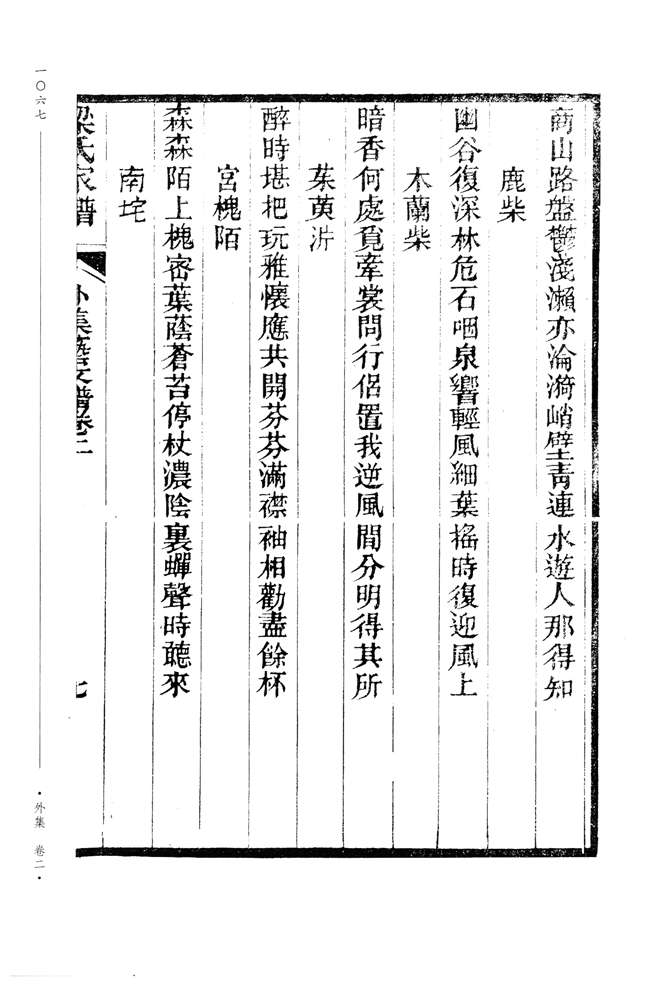 商山路盤鬱淺瀨亦淪漪峭壁青連水遊人那得知
鹿柴
幽谷復深林危石咽泉響輕風細葉搖時復迎風上
木蘭柴
暗香何處覓搴裳問行侶置我逆風間分明得其所
茱萸沜
醉時堪把玩雅懷應共開芬芬滿襟袖相勸盡餘杯
宮槐陌
森森陌上槐密葉蔭蒼苔停杖濃陰裏蟬聲時聽來
南垞
梁氏家譜
外集藝文譜卷二
七
一〇六七
·外集 卷二·